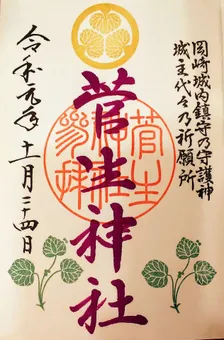 岡崎城内鎮守乃守護神
城主代々乃祈願所
菅生神社
令和元年十一月二十四日